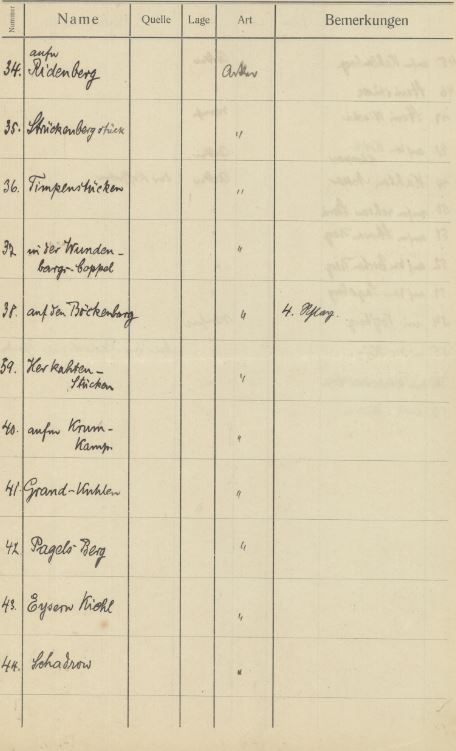 Nummer Name Quelle Lage Art Bemerkungen
34. aufm
Ridenberg Acker
35. Strückenbergstück "
36. Timpenstücken "
37. in der Wunden-
bargs-Coppel "
38. auf den Böckenberg " 4.
39. Herkahten-
Stücken "
40. aufm Krum-
Kamp. "
41. Grand-Kuhlen "
42. Pagels Berg "
43. Eysern Kiehl "
44. Schadrow "